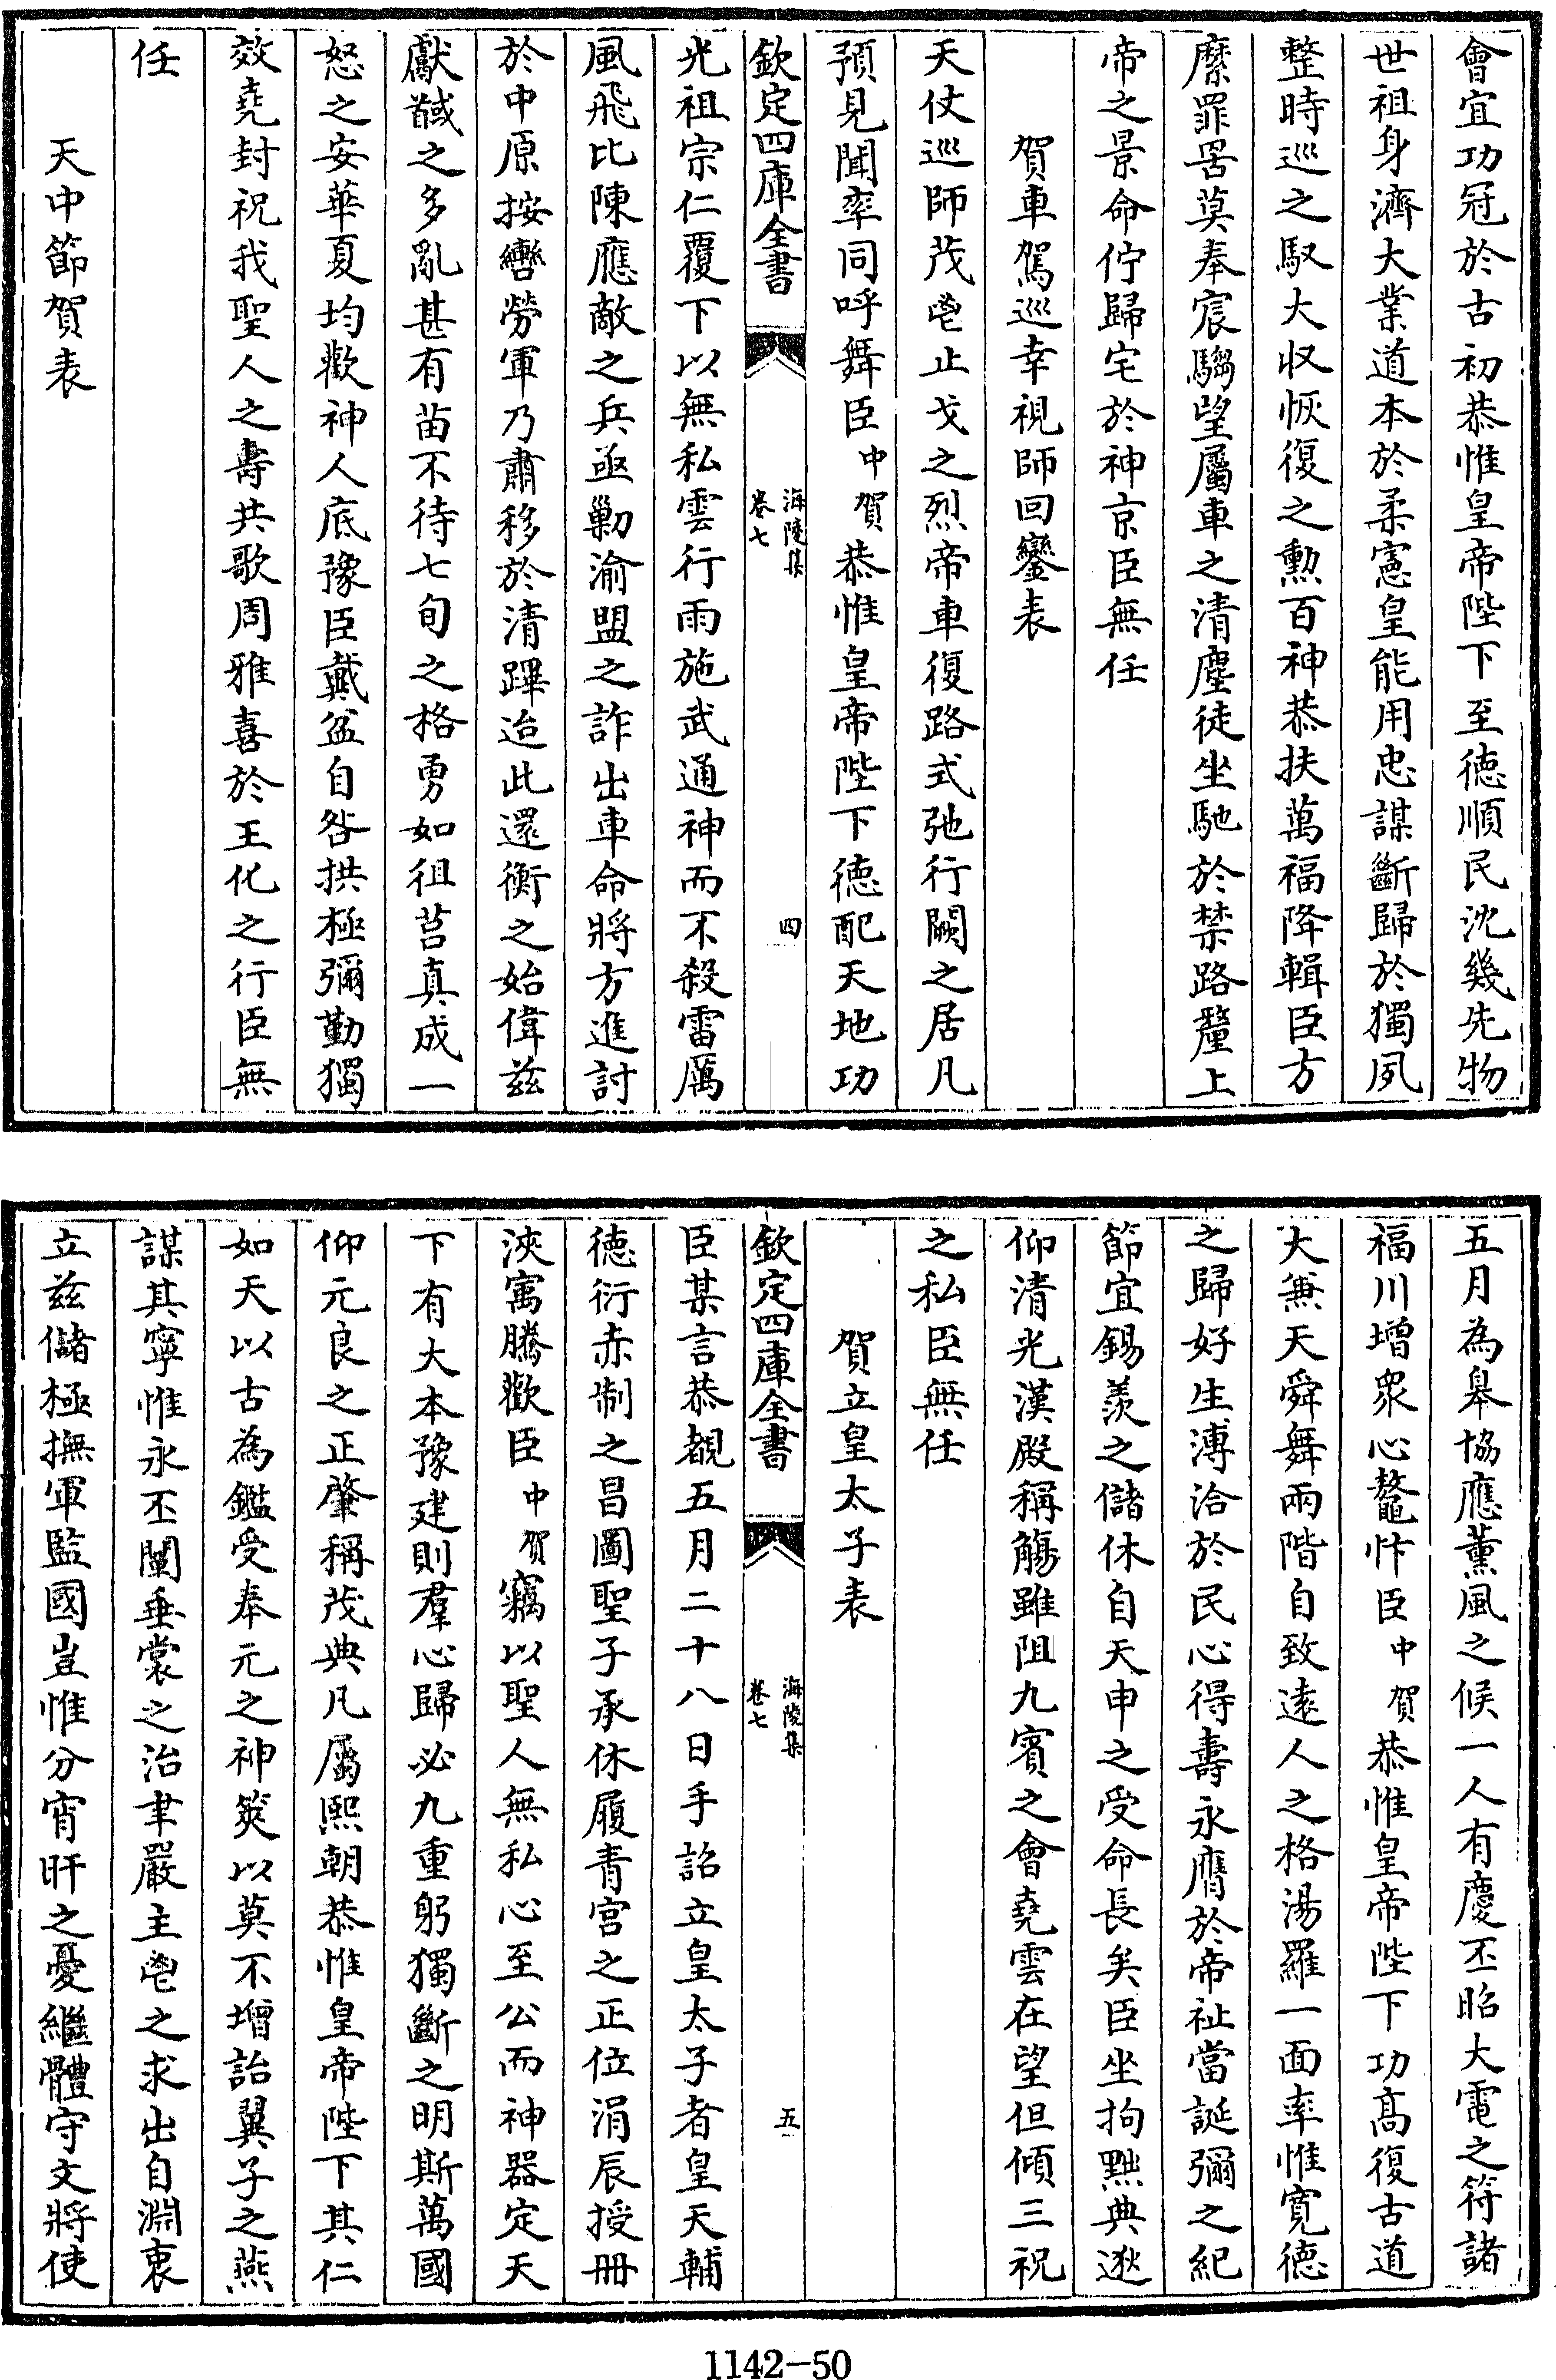 會宜功冠於古初恭惟皇帝陛下至徳順民沈幾先物
世祖身濟大業道本於柔憲皇能用忠謀斷歸於獨夙
整時巡之馭大収恢復之勲百神恭扶萬福降輯臣方
縻罪罟莫奉宸騶望屬車之清塵徒坐馳於禁路釐上
帝之景命佇歸宅於神京臣無任
賀車駕巡幸視師回鑾表
天仗巡師茂鬯止戈之烈帝車復路式弛行闕之居凡
預見聞率同呼舞臣中賀恭惟皇帝陛下徳配天地功
欽定四庫全書
海陵集
卷七
四
光祖宗仁覆下以無私雲行雨施武通神而不殺雷厲
風飛比陳應敵之兵亟勦渝盟之詐出車命將方進討
於中原按轡勞軍乃肅移於清蹕迨此還衡之始偉兹
獻馘之多亂甚有苗不待七旬之格勇如徂莒真成一
怒之安華夏均歡神人底豫臣戴盆自咎拱極彌勤獨
效堯封祝我聖人之壽共歌周雅喜於王化之行臣無
任
天中節賀表
五月為皋協應薰風之候一人有慶丕昭大電之符諸
福川增衆心鼇忭臣中賀恭惟皇帝陛下功髙復古道
大兼天舜舞兩階自致逺人之格湯羅一面率惟寛徳
之歸好生溥洽於民心得壽永膺於帝祉當誕彌之紀
節宜錫羡之儲休自天申之受命長矣臣坐拘黜典逖
仰清光漢殿稱觴雖阻九賓之會堯雲在望但傾三祝
之私臣無任
賀立皇太子表
欽定四庫全書
海陵集
卷七
五
臣某言恭覩五月二十八日手詔立皇太子者皇天輔
徳衍赤制之昌圖聖子承休履青宫之正位涓辰授冊
浹㝢騰歡臣中賀竊以聖人無私心至公而神器定天
下有大本豫建則羣心歸必九重躬獨斷之明斯萬國
仰元良之正肇稱茂典凡屬熙朝恭惟皇帝陛下其仁
如天以古為鑑受奉元之神筴以莫不增詒翼子之燕
謀其寧惟永丕闡垂裳之治聿嚴主鬯之求出自淵衷
立兹儲極撫軍監國豈惟分宵旰之憂繼體守文將使
1142-50